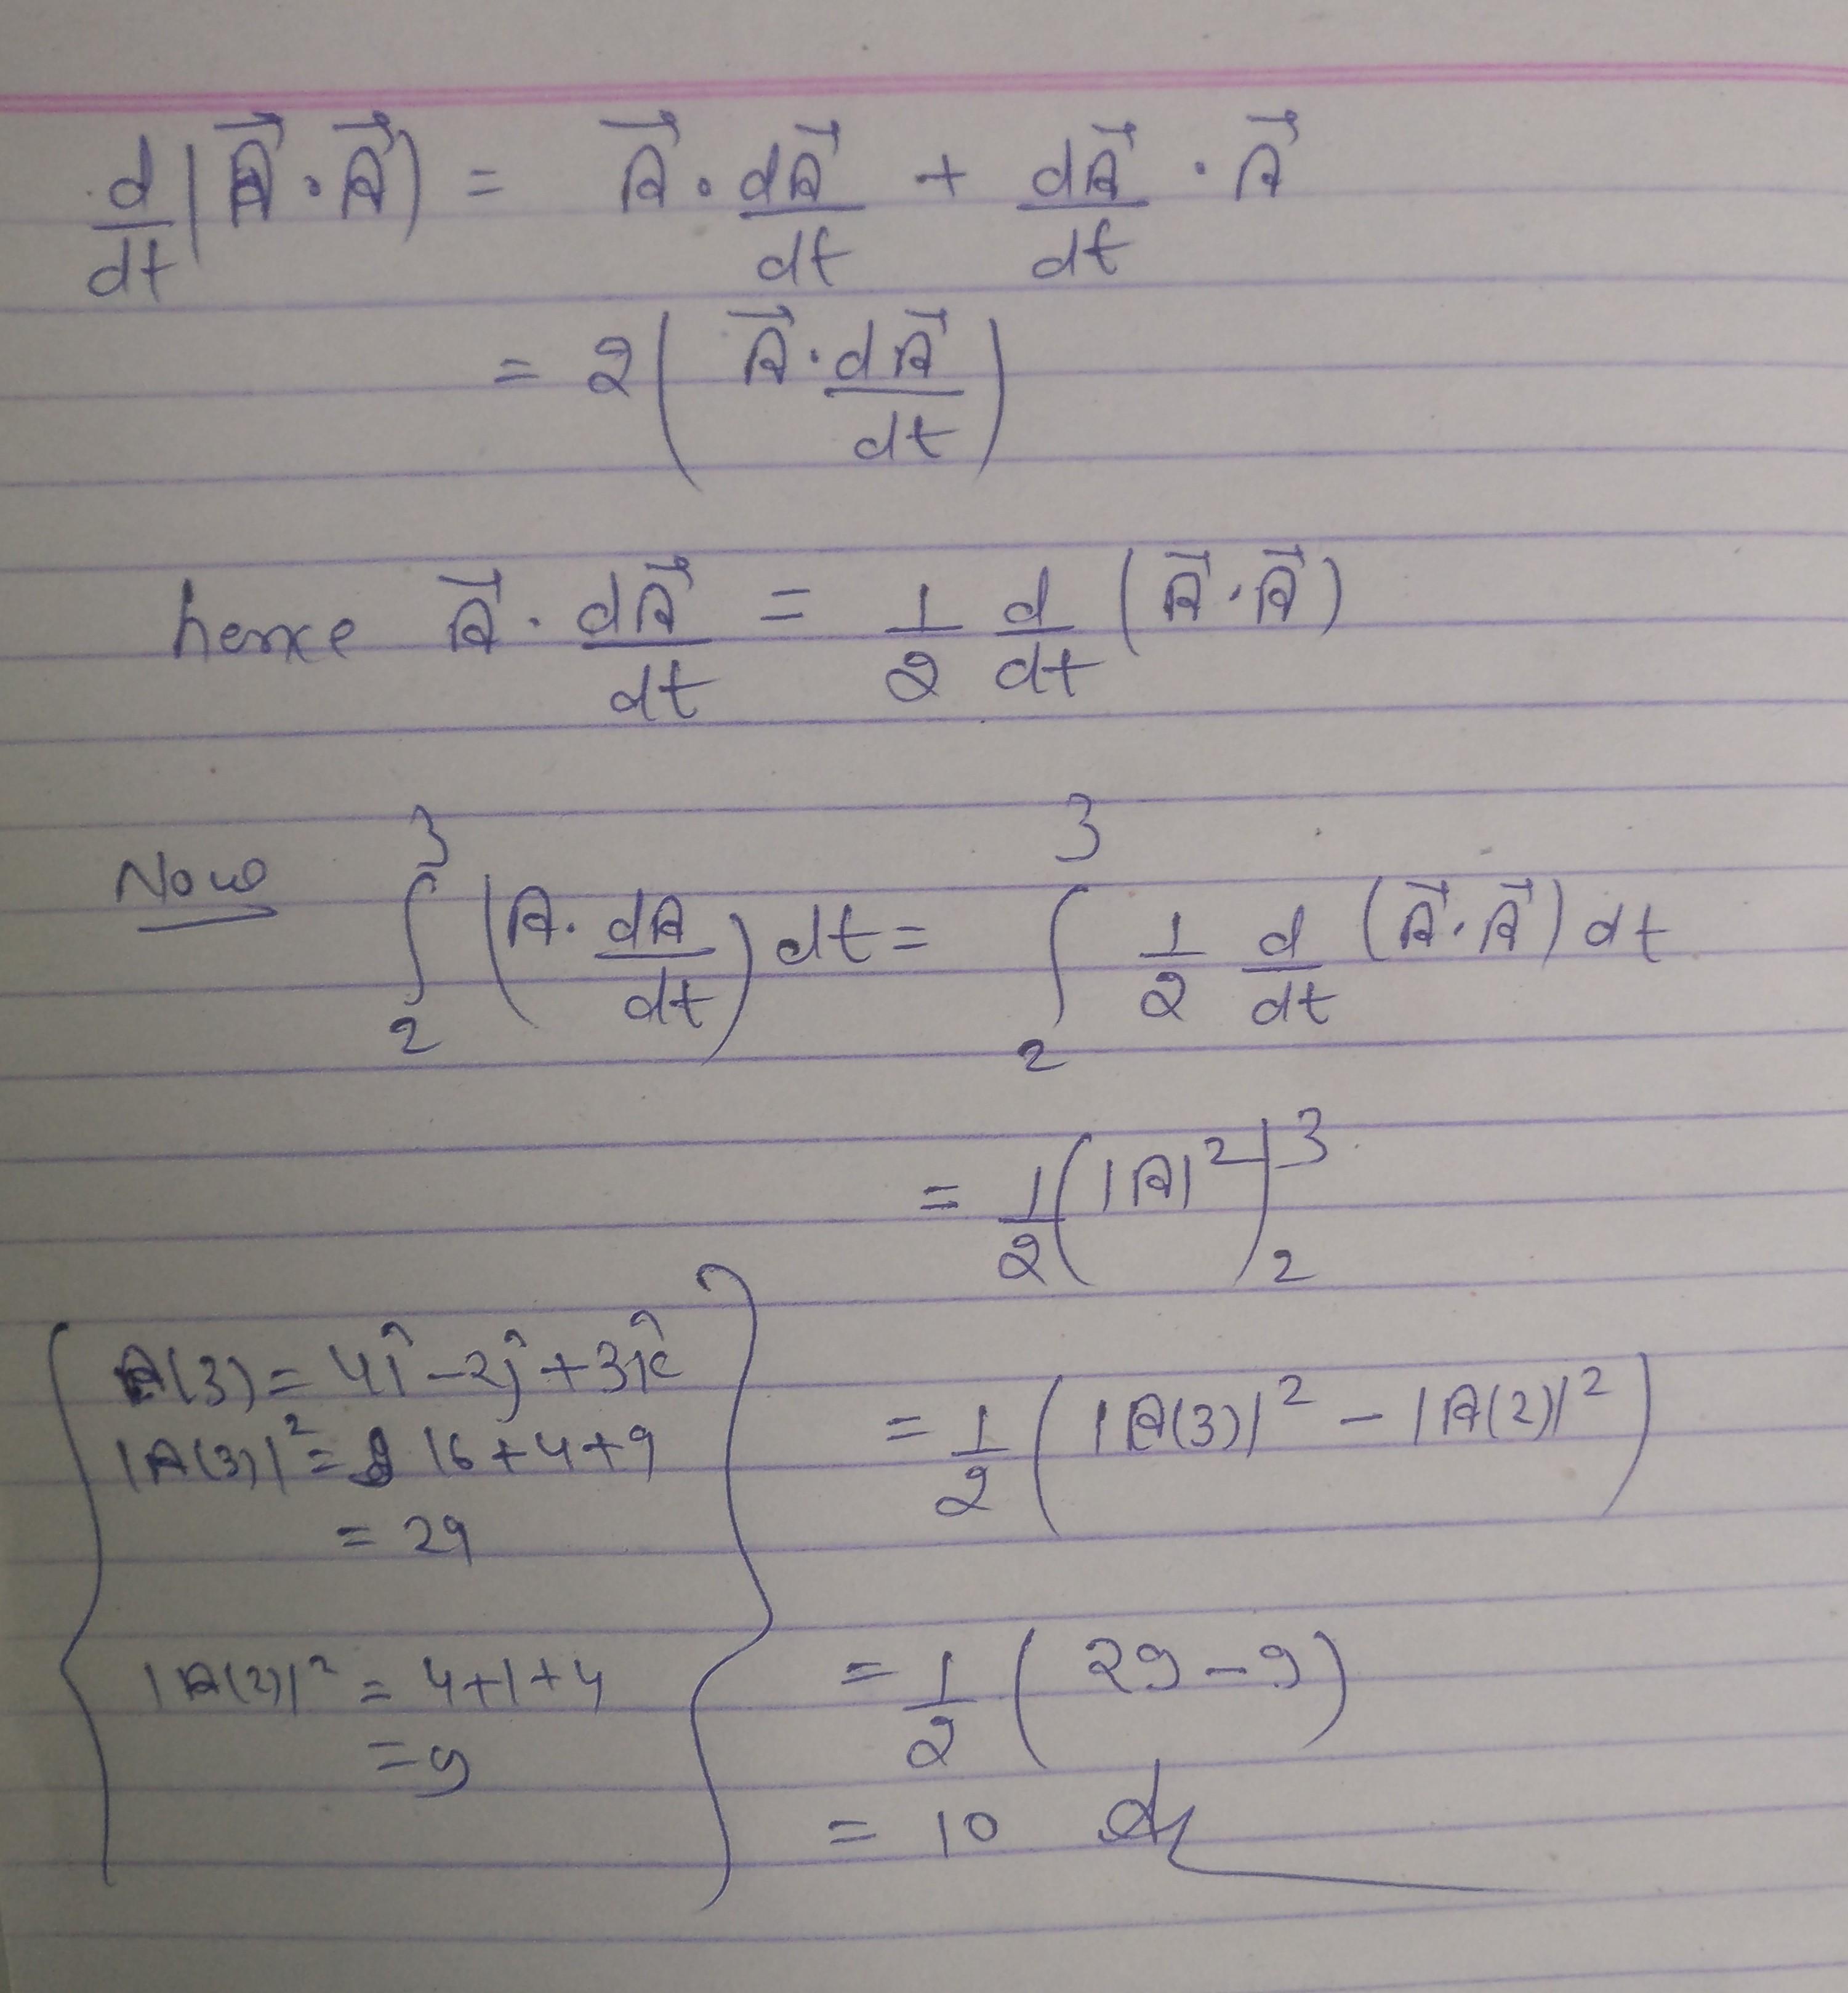 d/dt (A⃗ · A⃗) = A⃗ · dA⃗/dt + dA⃗/dt · A⃗
= 2 (A⃗ · dA⃗/dt)
hence A⃗ · dA⃗/dt = 1/2 d/dt (A⃗ · A⃗)
Now ∫₂³ (A · dA/dt) dt = ∫₂³ 1/2 d/dt (A⃗ · A⃗) dt
= 1/2 (|A|²)₂³
A(3) = 4î - 2ĵ + 3k̂
|A(3)|² = 16 + 4 + 9
= 29
|A(2)|² = 4+1+4
= 9
= 1/2 (|A(3)|² - |A(2)|²)
= 1/2 (29 - 9)
= 10